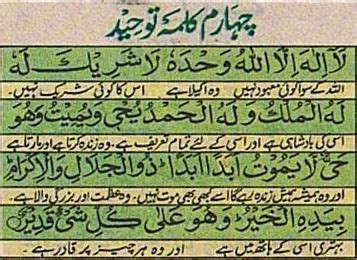 چہارم کلمہ توحید
لَآ اِلٰهَ اِلَّا اللهُ وَحْدَهٗ لَا شَرِيْكَ لَهٗ
اللہ کے سوا کوئی معبود نہیں وہ اکیلا ہے اس کا کوئی شریک نہیں۔
لَهُ الْمُلْكُ وَ لَهُ الْحَمْدُ يُحْيٖ وَ يُمِيْتُ وَهُوَ
اسی کی بادشاہی ہے اور اسی کے لئے تمام تعریف ہے۔ وہ زندہ کرتا ہے اور مارتا ہے
حَیٌّ لَّا يَمُوْتُ اَبَدًا اَبَدًا ذُو الْجَلَالِ وَالْاِكْرَامِ
اور وہ ہمیشہ ہمیش زندہ رہے گا اسے کبھی بھی موت نہیں۔ وہ عظمت اور بزرگی والا ہے۔
بِيَدِهِ الْخَيْرُ وَهُوَ عَلٰى كُلِّ شَیْءٍ قَدِيْرٌ
بہتری اسی کے ہاتھ میں ہے اور وہ ہر چیز پر قادر ہے۔